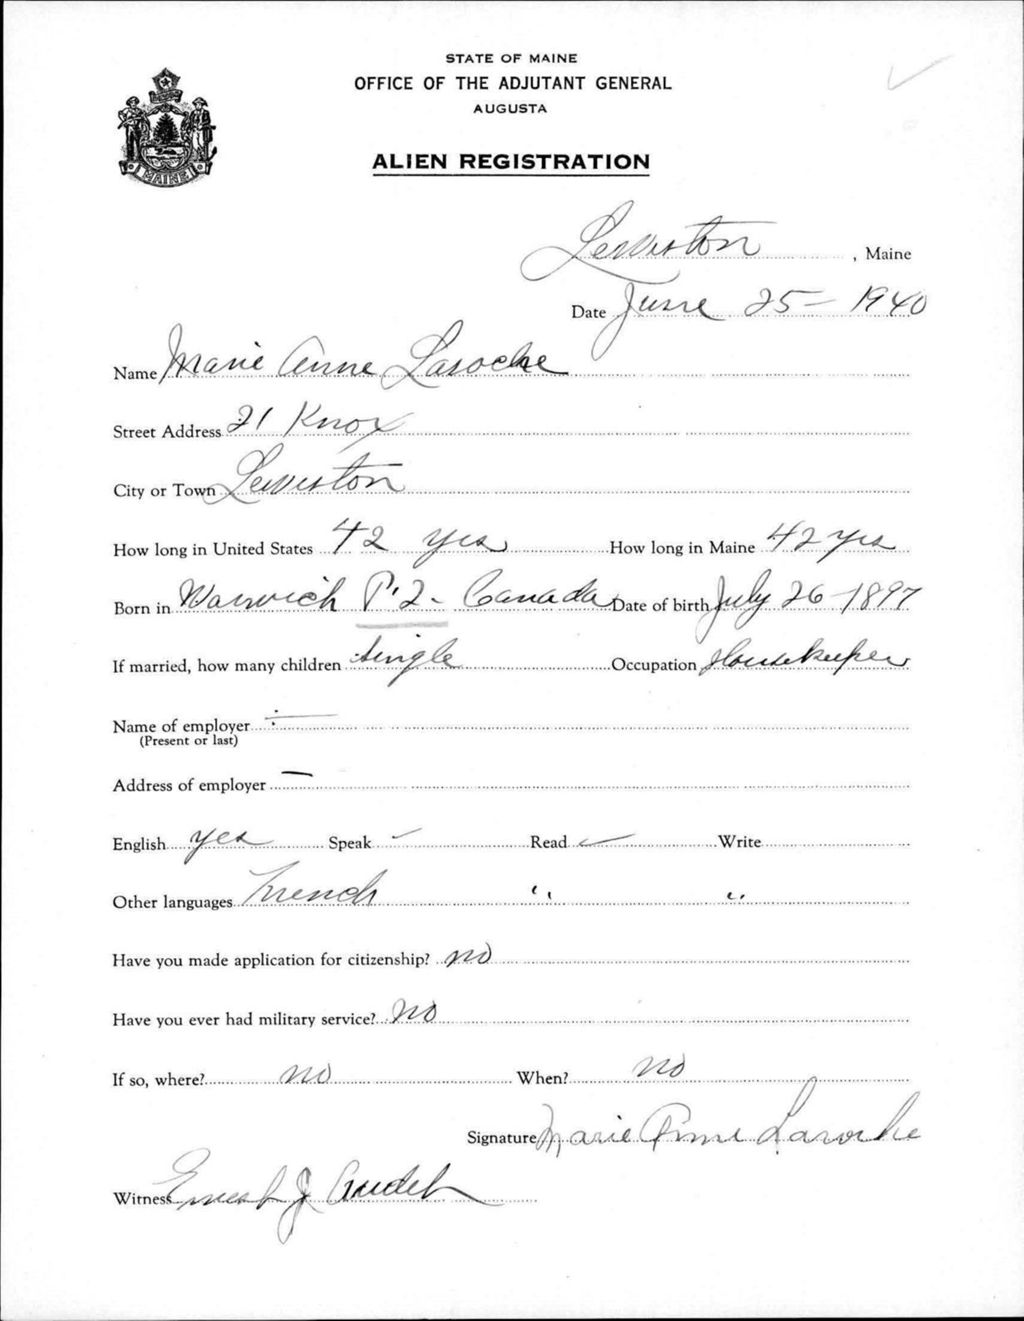 STATE OF MAINE
OFFICE OF THE ADJUTANT GENERAL
AUGUSTA
ALIEN REGISTRATION
MAINE
Lewiston, Maine
Date June 25 - 1940
Name Marie Anne Laroche
Street Address 21 Knox
City or Town Lewiston
How long in United States 42 yrs How long in Maine 42 yrs
Born in Warwick P.Q. Canada Date of birth July 26 - 1897
If married, how many children single Occupation Housekeeper
Name of employer -
(Present or last)
Address of employer -
English yes Speak ✓ Read ✓ Write
Other languages French " "
Have you made application for citizenship? no
Have you ever had military service? No
If so, where? no When? no
Signature Marie Anne Laroche
Witness Ernest J Audet